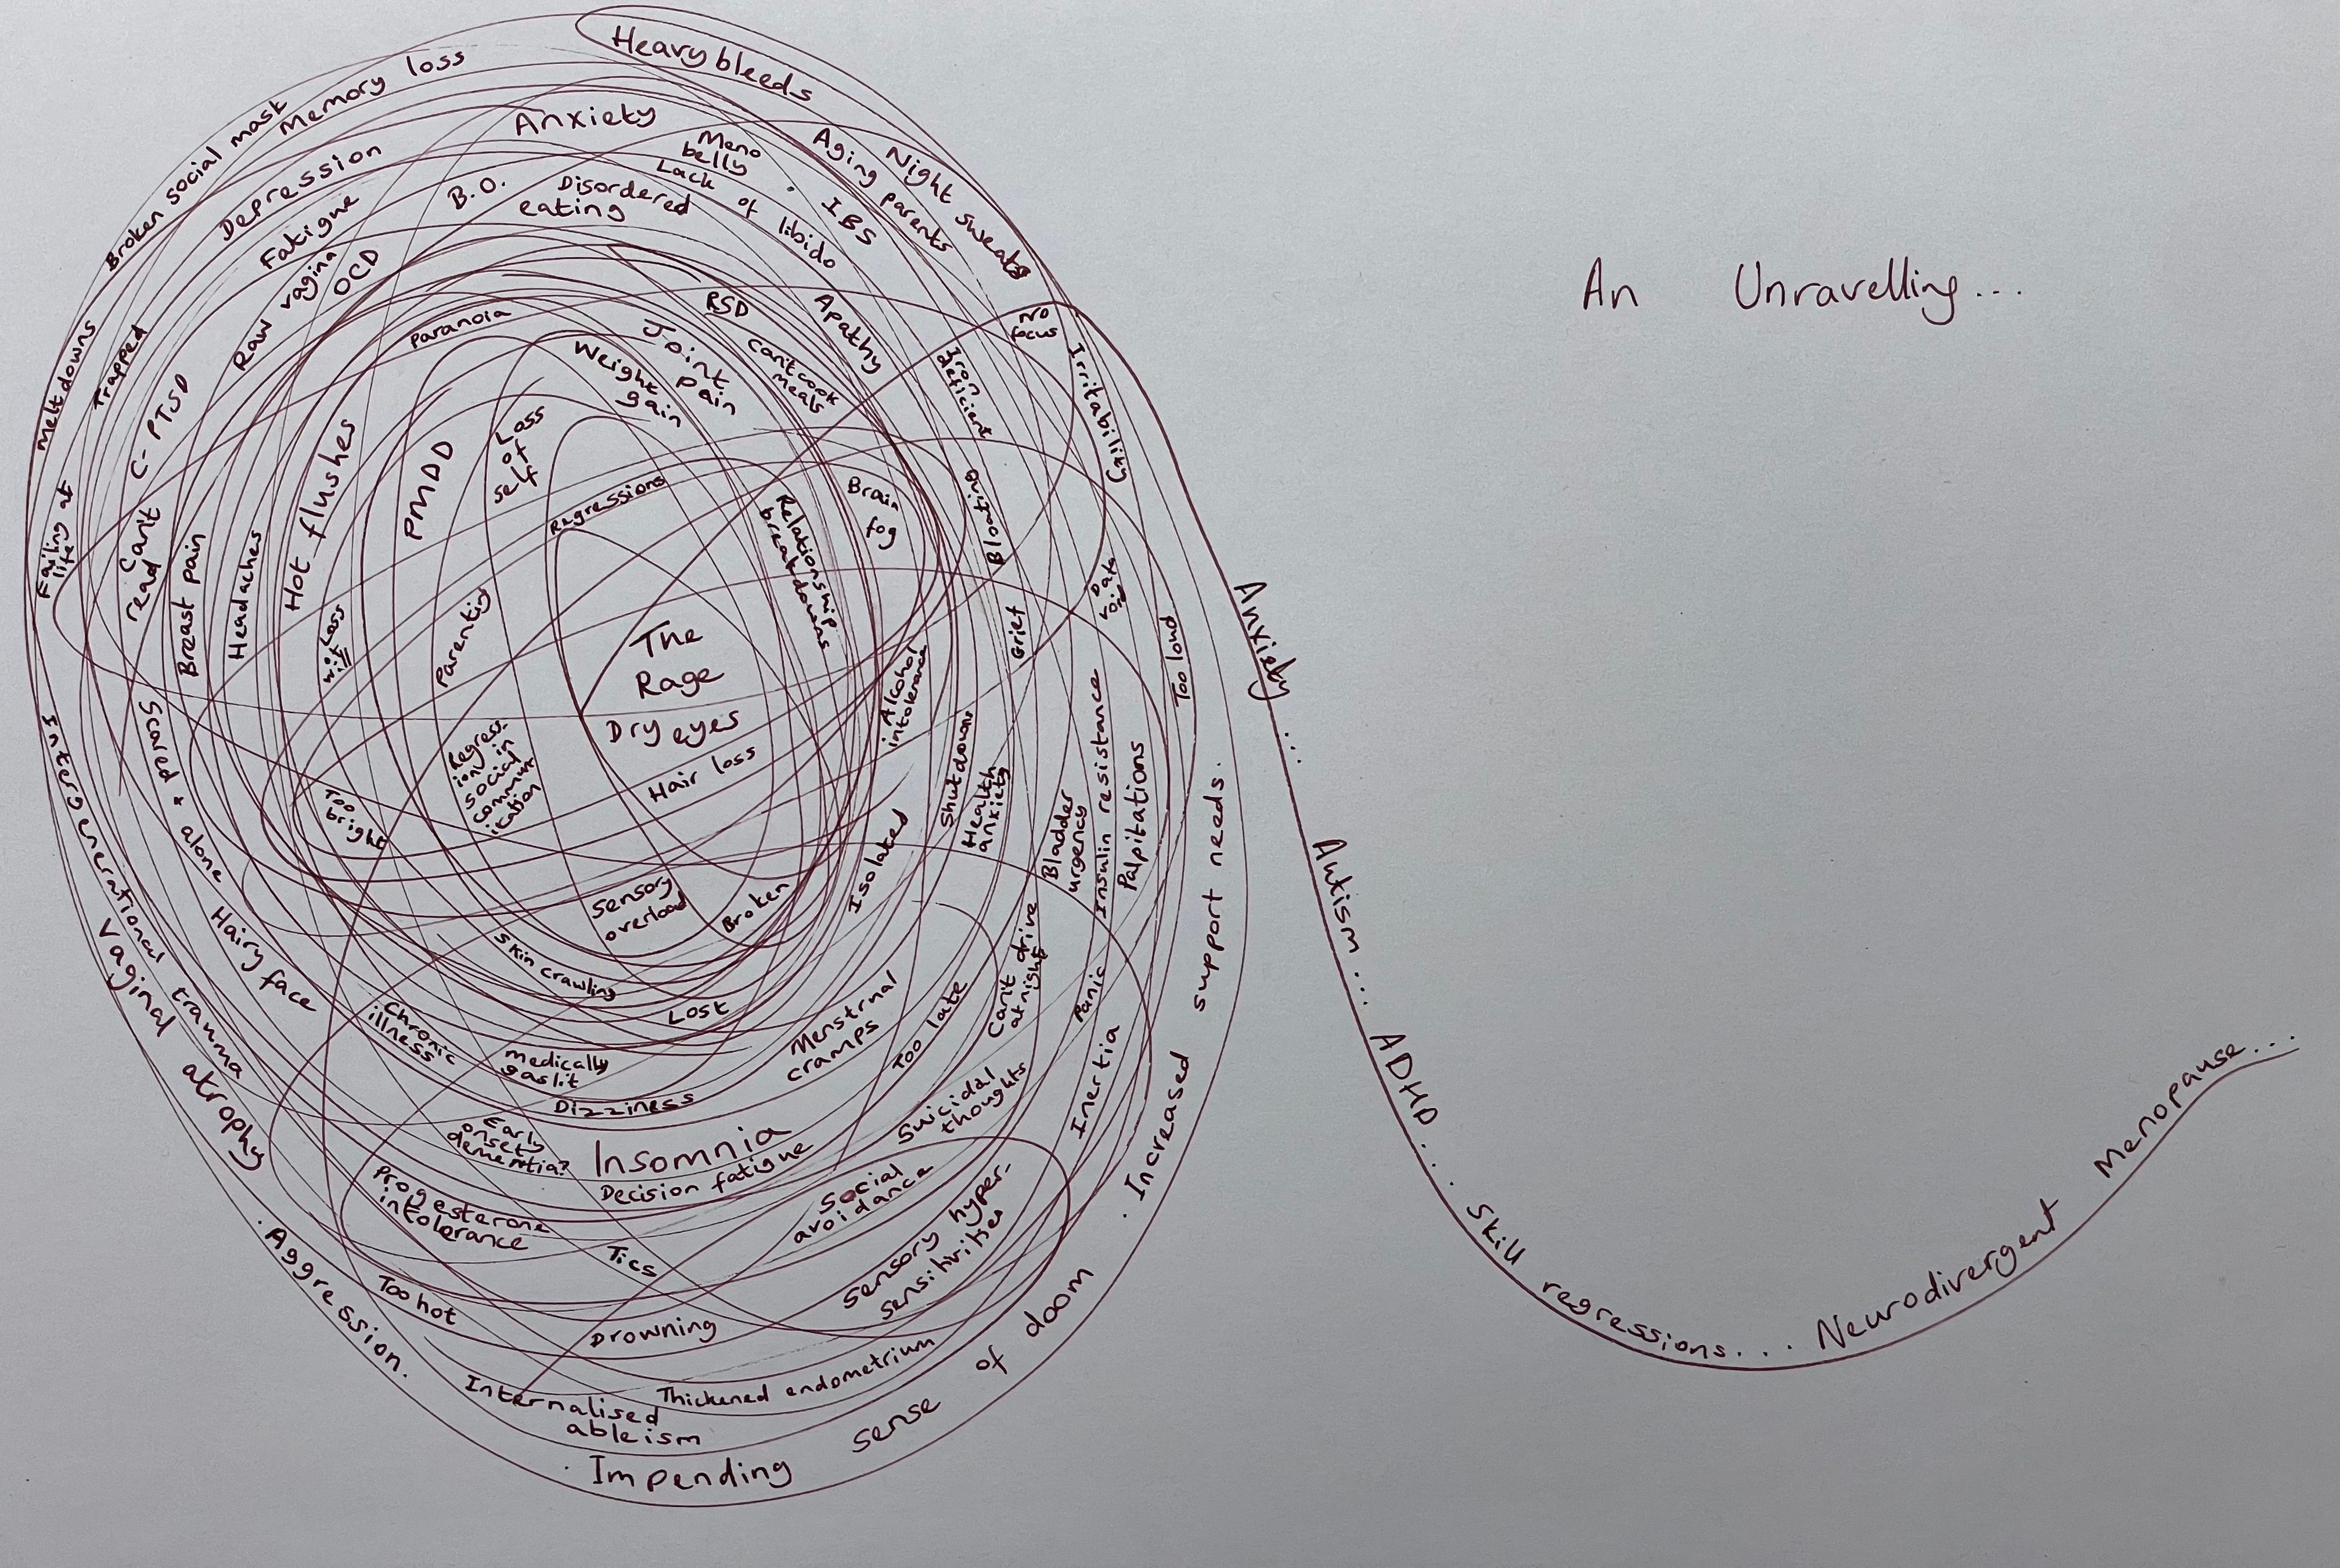 An Unravelling...
Heavy bleeds
Memory loss
Broken social mask
Anxiety
Meno
belly
Aging parents
Night sweats
Depression
Fatigue
B.O.
Disordered
eating
Lack
of
libido
IBS
Raw vagina
OCD
Paranoia
RSD
Joint
pain
Weight
gain
can't cook
meals
Apathy
No
focus
Iron
deficient
Irritability
Meltdowns
Trapped
C-PTSD
Failing at
life
Can't
read
Breast pain
Headaches
Hot flushes
PMDD
Loss
of
self
Regressions
Relationship
breakdowns
Brain
fog
Grief
Data
void
Too loud
Loss
of
will
Parenting
The
Rage
Dry eyes
Hair loss
Alcohol
intolerance
Shutdowns
Health
anxiety
Bladder
urgency
Insulin resistance
Palpitations
Intergenerational trauma
Scared + alone
Too
bright
Regress-
ions in
social
commun-
ication
Sensory
overload
Broken
Isolated
Skin crawling
Lost
Hairy face
Vaginal atrophy
Chronic
illness
Medically
gaslit
Dizziness
Menstrual
cramps
Too late
Can't drive
at night
Panic
Inertia
Suicidal
thoughts
Early
onset
dementia?
Insomnia
Decision fatigue
Progesterone
intolerance
Tics
Social
avoidance
Sensory hyper-
sensitivities
Too hot
Drowning
Aggression.
Internalised
ableism
Thickened endometrium
. Impending sense of doom
. Increased support needs.
Anxiety... Autism... ADHD... Skill regressions... Neurodivergent Menopause...